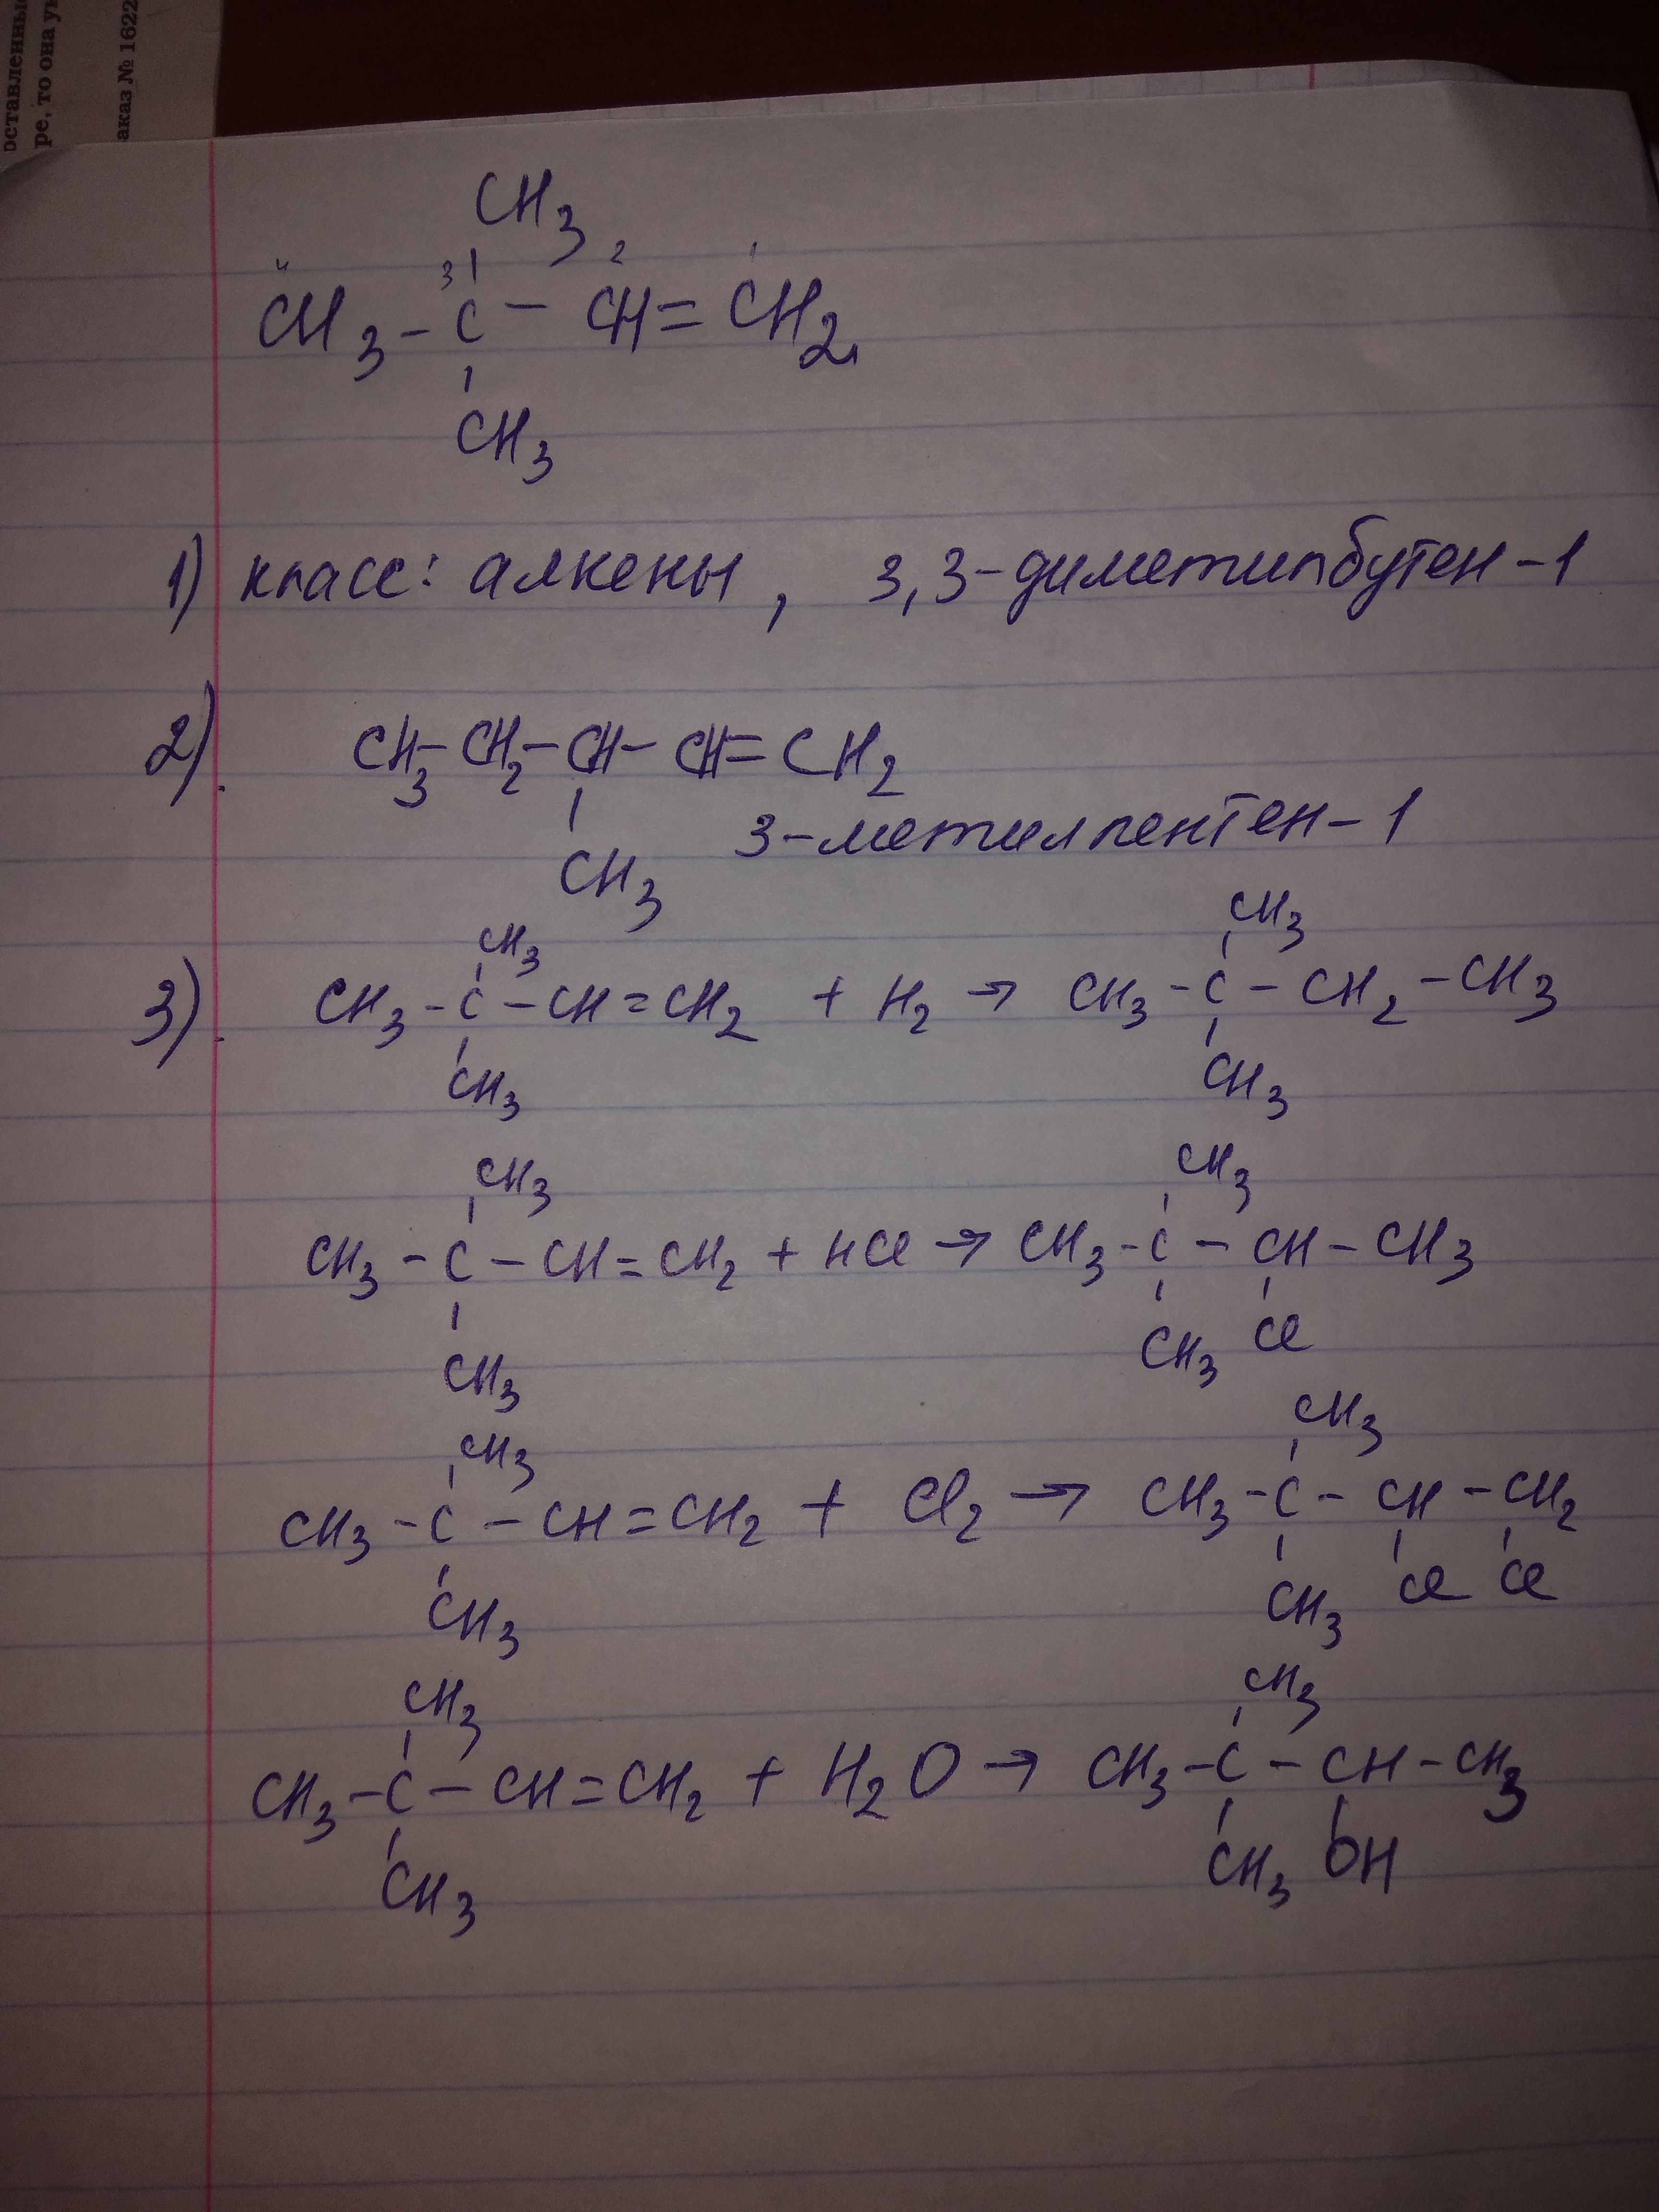 оставленные
ре, то она ук
аказ № 1622
CH3
4 3 2 1
CH3 - C - CH = CH2
CH3
1) класс: алкены, 3,3-диметилбутен-1
2). CH3 - CH2 - CH - CH = CH2
CH3 3-метилпентен-1
CH3 CH3
3). CH3 - C - CH = CH2 + H2 → CH3 - C - CH2 - CH3
CH3 CH3
CH3 CH3
CH3 - C - CH = CH2 + HCl → CH3 - C - CH - CH3
CH3 CH3 Cl
CH3 CH3
CH3 - C - CH = CH2 + Cl2 → CH3 - C - CH - CH2
CH3 CH3 Cl Cl
CH3 CH3
CH3 - C - CH = CH2 + H2O → CH3 - C - CH - CH3
CH3 CH3 OH